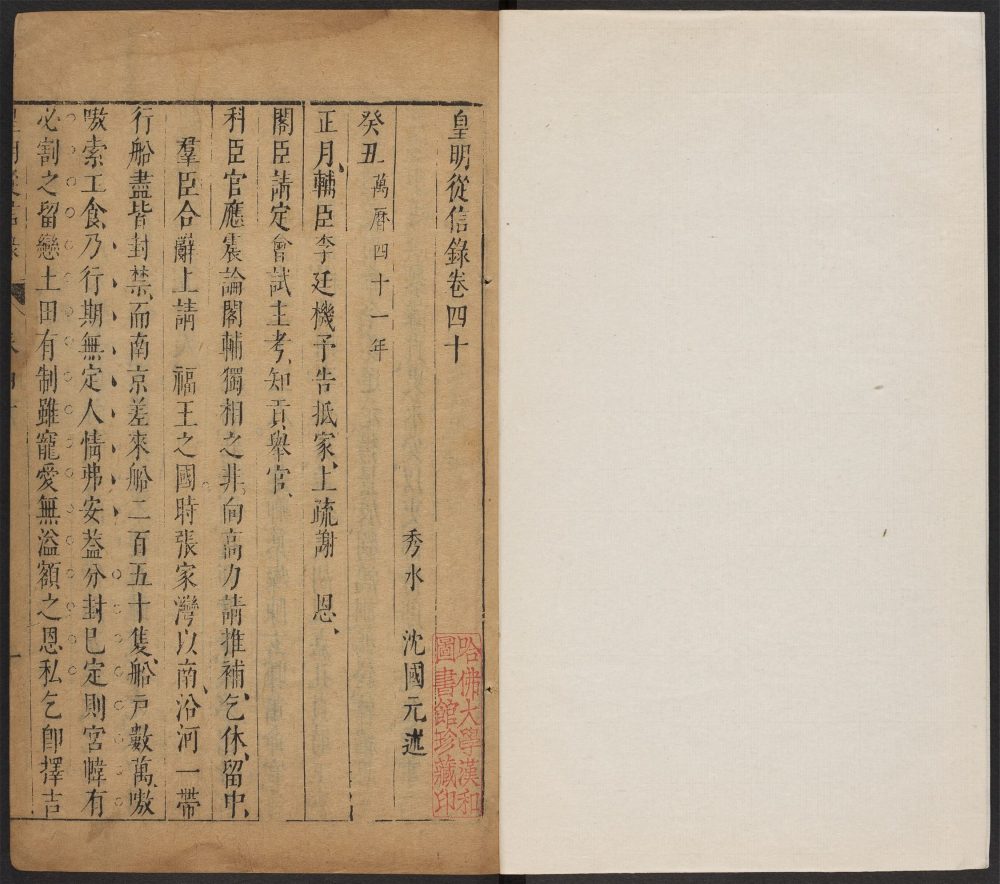 皇明從信錄卷四十
秀水 沈國元 述
癸丑 萬曆四十一年
正月、輔臣李廷機予告抵家、上疏謝 恩、
閣臣請定會試主考、知貢舉官、
科臣官應震論閣輔獨相之非、向高力請推補、乞休、留中、
羣臣合辭上請 福王之國時張家灣以南、沿河一帶
行船盡皆封禁、而南京差來船二百五十隻、船戶數萬、嗷
嗷索工食、乃行期無定、人情弗安、葢分封已定則宮幃有
必割之留戀土田有制雖寵愛無溢額之恩私乞卽擇吉
哈佛大學漢和
圖書館珍藏印